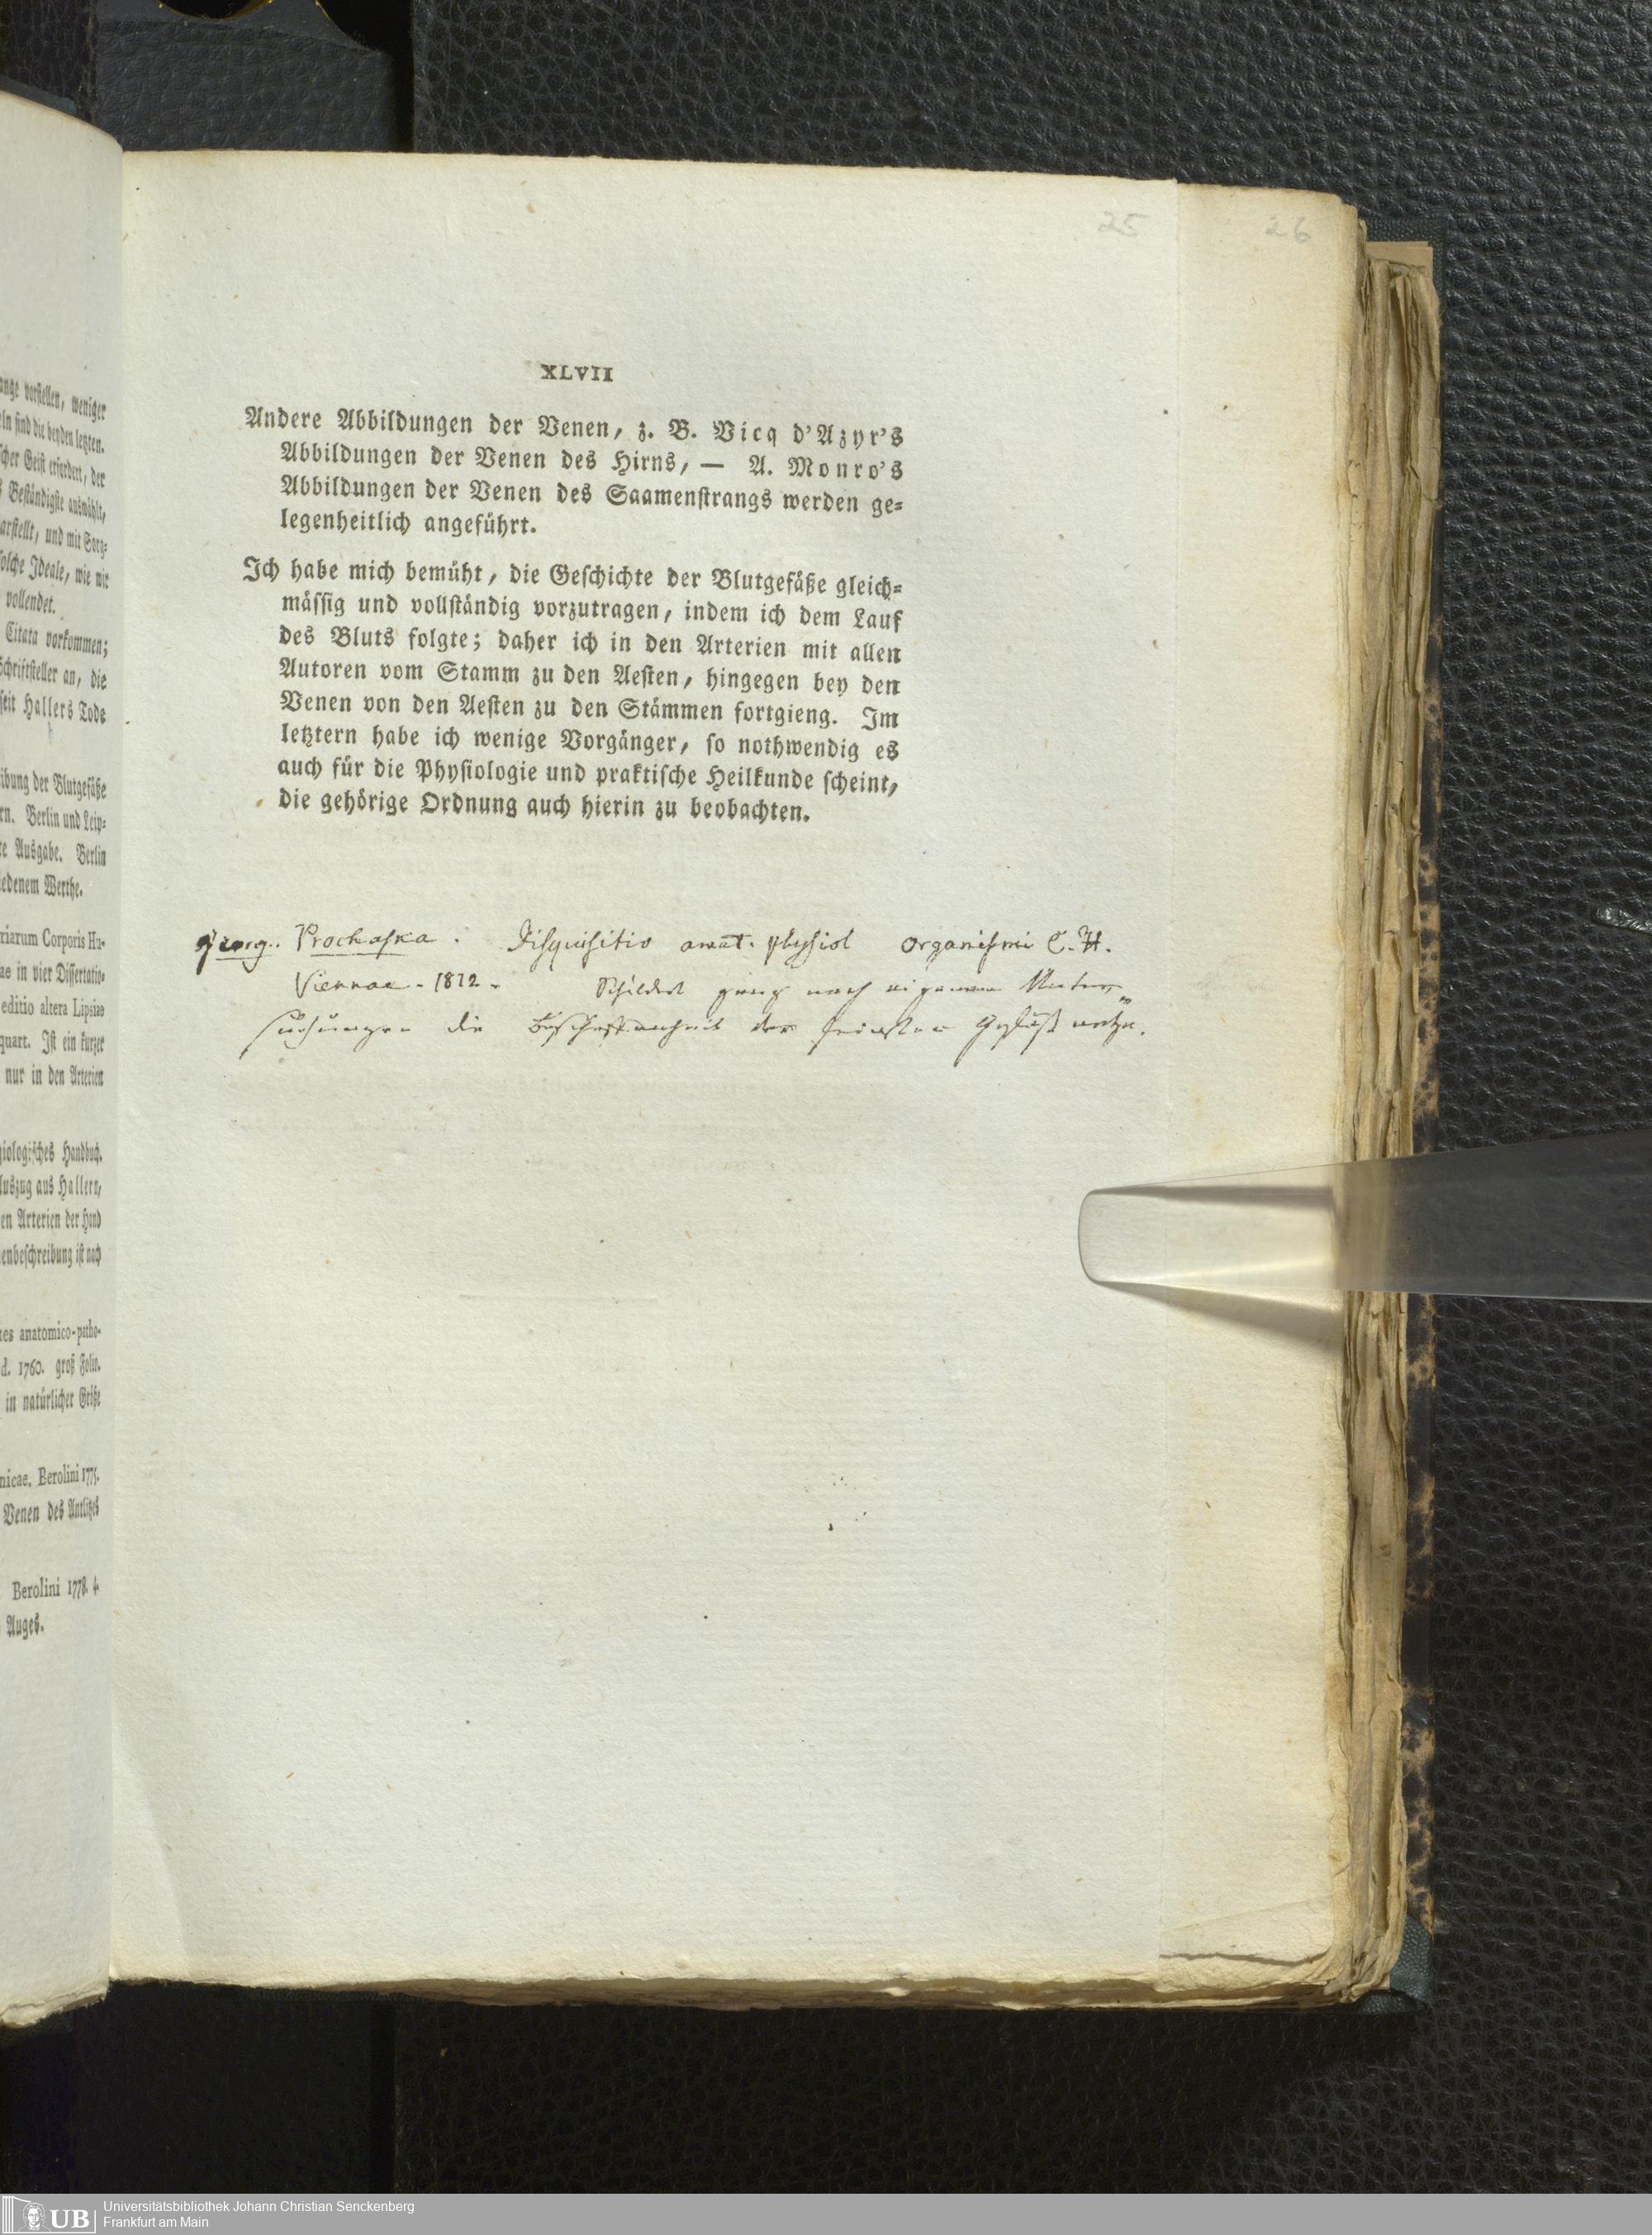 25
26
XLVII
Andere Abbildungen der Venen, z. B. Vicq d'Azyr's
Abbildungen der Venen des Hirns, — A. Monro's
Abbildungen der Venen des Saamenstrangs werden ge-
legenheitlich angeführt.
Ich habe mich bemüht, die Geschichte der Blutgefäße gleich-
mässig und vollständig vorzutragen, indem ich dem Lauf
des Bluts folgte; daher ich in den Arterien mit allen
Autoren vom Stamm zu den Aesten, hingegen bey den
Venen von den Aesten zu den Stämmen fortgieng. Im
letztern habe ich wenige Vorgänger, so nothwendig es
auch für die Physiologie und praktische Heilkunde scheint,
die gehörige Ordnung auch hierin zu beobachten.
Georg. Prochaska. Disquisitio anat. physiol organismi C. H.
Viennae. 1812. Schildert ganz nach eigenen Unter„
suchungen die Beschaffenheit der feinsten Gefäß netze.
ange vorstellen, weniger
eln sind die beyden letzten.
scher Geist erfordert, der
s Beständigste auswählt,
arstellt, und mit Sorg-
solche Ideale, wie wir
vollendet.
Citata vorkommen;
Schriftsteller an, die
seit Hallers Tode
ibung der Blutgefäße
rn. Berlin und Leip-
te Ausgabe. Berlin
iedenem Werthe.
riarum Corporis Hu-
ae in vier Dissertatio-
editio altera Lipsiae
quart. Ist ein kurzer
nur in den Arterien
giologisches Handbuch.
Auszug aus Hallern,
en Arterien der Hand
enbeschreibung ist nach
res anatomico-patho-
d. 1760. groß Folio.
in natürlicher Größe
nicae. Berolini 1775.
Venen des Antlitzes
Berolini 1778. 4.
Auges.
UB
Universitätsbibliothek Johann Christian Senckenberg
Frankfurt am Main